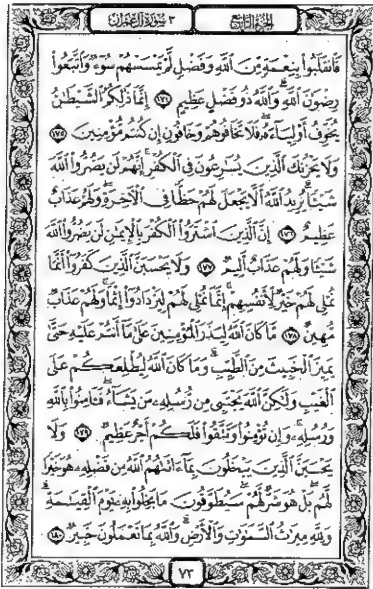 ٣ سورة آل عمران الجزء الرابع
فَٱنقَلَبُوا۟ بِنِعْمَةٍ مِّنَ ٱللَّهِ وَفَضْلٍ لَّمْ يَمْسَسْهُمْ سُوٓءٌ وَٱتَّبَعُوا۟
رِضْوَٰنَ ٱللَّهِ ۗ وَٱللَّهُ ذُو فَضْلٍ عَظِيمٍ ١٧٤ إِنَّمَا ذَٰلِكُمُ ٱلشَّيْطَٰنُ
يُخَوِّفُ أَوْلِيَآءَهُۥ فَلَا تَخَافُوهُمْ وَخَافُونِ إِن كُنتُم مُّؤْمِنِينَ ١٧٥
وَلَا يَحْزُنكَ ٱلَّذِينَ يُسَٰرِعُونَ فِى ٱلْكُفْرِ ۚ إِنَّهُمْ لَن يَضُرُّوا۟ ٱللَّهَ
شَيْـًٔا ۗ يُرِيدُ ٱللَّهُ أَلَّا يَجْعَلَ لَهُمْ حَظًّا فِى ٱلْءَاخِرَةِ ۖ وَلَهُمْ عَذَابٌ
عَظِيمٌ ١٧٦ إِنَّ ٱلَّذِينَ ٱشْتَرَوُا۟ ٱلْكُفْرَ بِٱلْإِيمَٰنِ لَن يَضُرُّوا۟ ٱللَّهَ
شَيْـًٔا وَلَهُمْ عَذَابٌ أَلِيمٌ ١٧٧ وَلَا يَحْسَبَنَّ ٱلَّذِينَ كَفَرُوٓا۟ أَنَّمَا
نُمْلِى لَهُمْ خَيْرٌ لِّأَنفُسِهِمْ ۚ إِنَّمَا نُمْلِى لَهُمْ لِيَزْدَادُوٓا۟ إِثْمًا ۚ وَلَهُمْ عَذَابٌ
مُّهِينٌ ١٧٨ مَّا كَانَ ٱللَّهُ لِيَذَرَ ٱلْمُؤْمِنِينَ عَلَىٰ مَآ أَنتُمْ عَلَيْهِ حَتَّىٰ
يَمِيزَ ٱلْخَبِيثَ مِنَ ٱلطَّيِّبِ ۗ وَمَا كَانَ ٱللَّهُ لِيُطْلِعَكُمْ عَلَى
ٱلْغَيْبِ وَلَٰكِنَّ ٱللَّهَ يَجْتَبِى مِن رُّسُلِهِۦ مَن يَشَآءُ ۖ فَـَٔامِنُوا۟ بِٱللَّهِ
وَرُسُلِهِۦ ۚ وَإِن تُؤْمِنُوا۟ وَتَتَّقُوا۟ فَلَكُمْ أَجْرٌ عَظِيمٌ ١٧٩ وَلَا
يَحْسَبَنَّ ٱلَّذِينَ يَبْخَلُونَ بِمَآ ءَاتَىٰهُمُ ٱللَّهُ مِن فَضْلِهِۦ هُوَ خَيْرًا
لَّهُم ۖ بَلْ هُوَ شَرٌّ لَّهُمْ ۖ سَيُطَوَّقُونَ مَا بَخِلُوا۟ بِهِۦ يَوْمَ ٱلْقِيَٰمَةِ ۗ
وَلِلَّهِ مِيرَٰثُ ٱلسَّمَٰوَٰتِ وَٱلْأَرْضِ ۗ وَٱللَّهُ بِمَا تَعْمَلُونَ خَبِيرٌ ١٨٠
٧٣